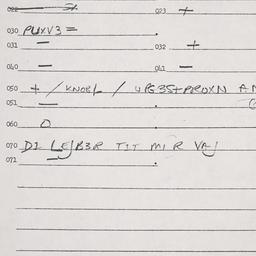 022 — 023 +
030 PUXV3 =
031 — 032 +
040 — 041 —
050 + / KNOBL / UPG3S+PROXN AN
051 —
060 O
070 DI LEJB3R TIT MI R VAJ
071 —